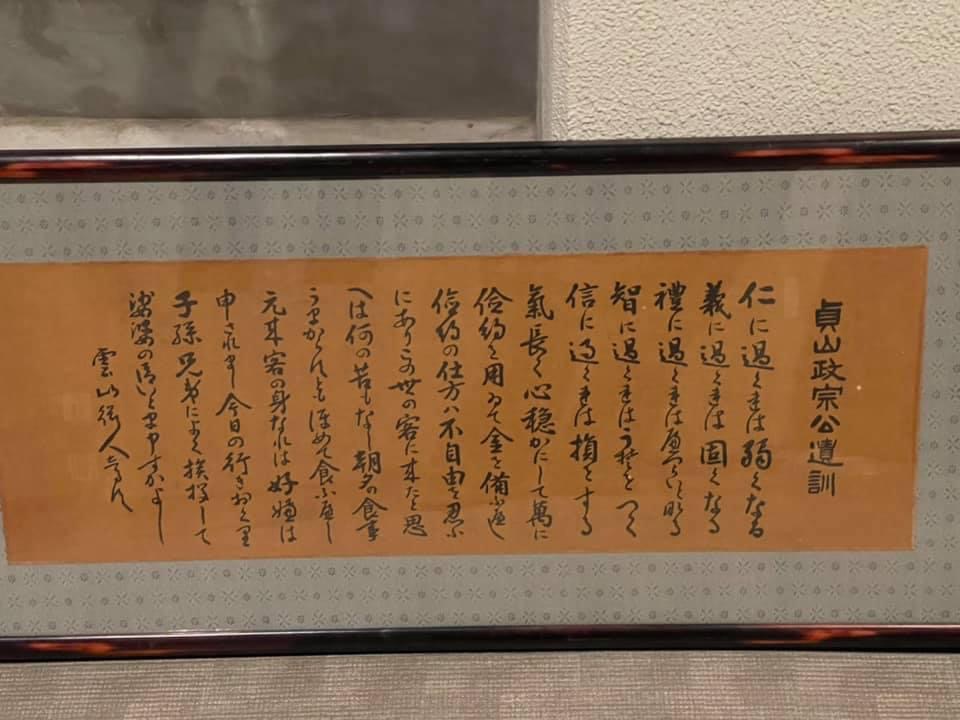 貞山政宗公遺訓
仁に過くれは弱くなる
義に過くれは固くなる
禮に過くれは諂らいとなる
智に過くれはうそをつく
信に過くれは損をする
氣長く心穏かにして萬に
儉約を用ゐて金を備ふ遍し
儉約の仕方ハ不自由を忍ふ
にありこの世の客に来たと思
へは何の苦もなし朝夕の食事
うまからすともほめて食ふ遍し
元来客の身なれは好嫌は
申されまし今日の行きおくり
子孫兄弟によく挨拶して
娑婆の御いとま申すかよし
雲山行人